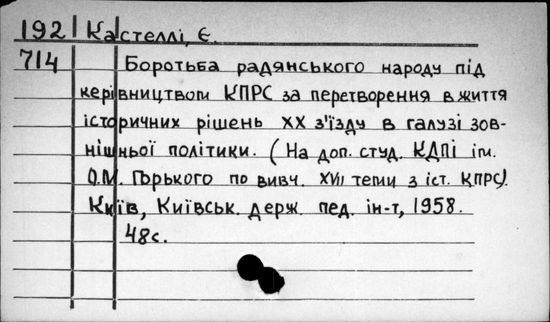 192 Кастеллі, Є.
714 Боротьба радянського народу під
керівництвом КПРС за перетворення в життя
історичних рішень XX з'їзду в галузі зов-
нішньої політики. (На доп. студ. КДПІ ім.
О.М. Горького по вивч. XVII теми з іст. КПРС).
Київ, Київськ. держ. пед. ін-т, 1958.
48с.